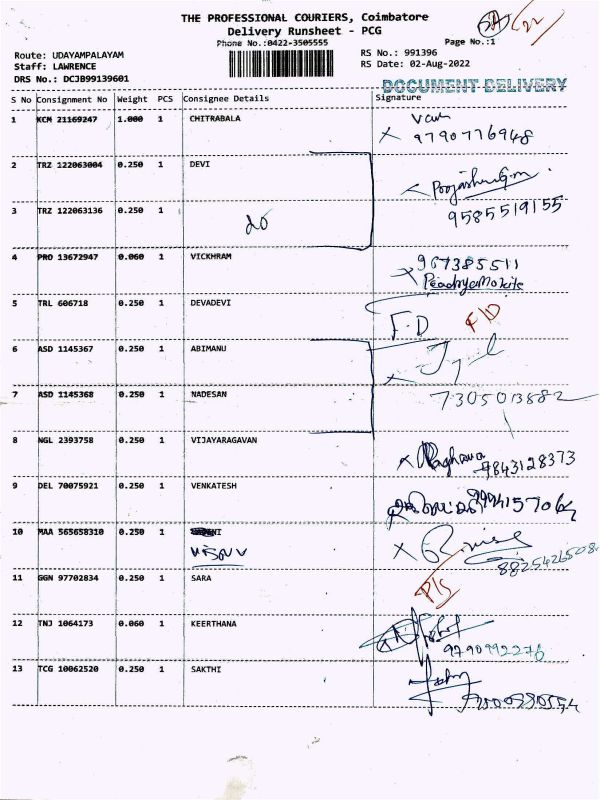 THE PROFESSIONAL COURIERS, Coimbatore
Delivery Runsheet - PCG
Phone No.:0422-3505555
Page No.:1
Route: UDAYAMPALAYAM
RS No.: 991396
Staff: LAWRENCE
RS Date: 02-Aug-2022
DRS No.: DCJB99139601
DOCUMENT DELIVERY
S No Consignment No Weight PCS Consignee Details Signature
1 KCM 21169247 1.000 1 CHITRABALA
9790776948
2 TRZ 122063004 0.250 1 DEVI
3 TRZ 122063136 0.250 1
9585519155
4 PRO 13672947 0.060 1 VICKHRAM
967385511
5 TRL 606718 0.250 1 DEVADEVI
F.D
F/D
6 ASD 1145367 0.250 1 ABIMANU
7 ASD 1145368 0.250 1 NADESAN
7305013882
8 NGL 2393758 0.250 1 VIJAYARAGAVAN
Raghava
9843128373
9 DEL 70075921 0.250 1 VENKATESH
10 MAA 565658310 0.250 1
8825426508
11 GGN 97702834 0.250 1 SARA
12 TNJ 1064173 0.060 1 KEERTHANA
9790992276
13 TCG 10062520 0.250 1 SAKTHI